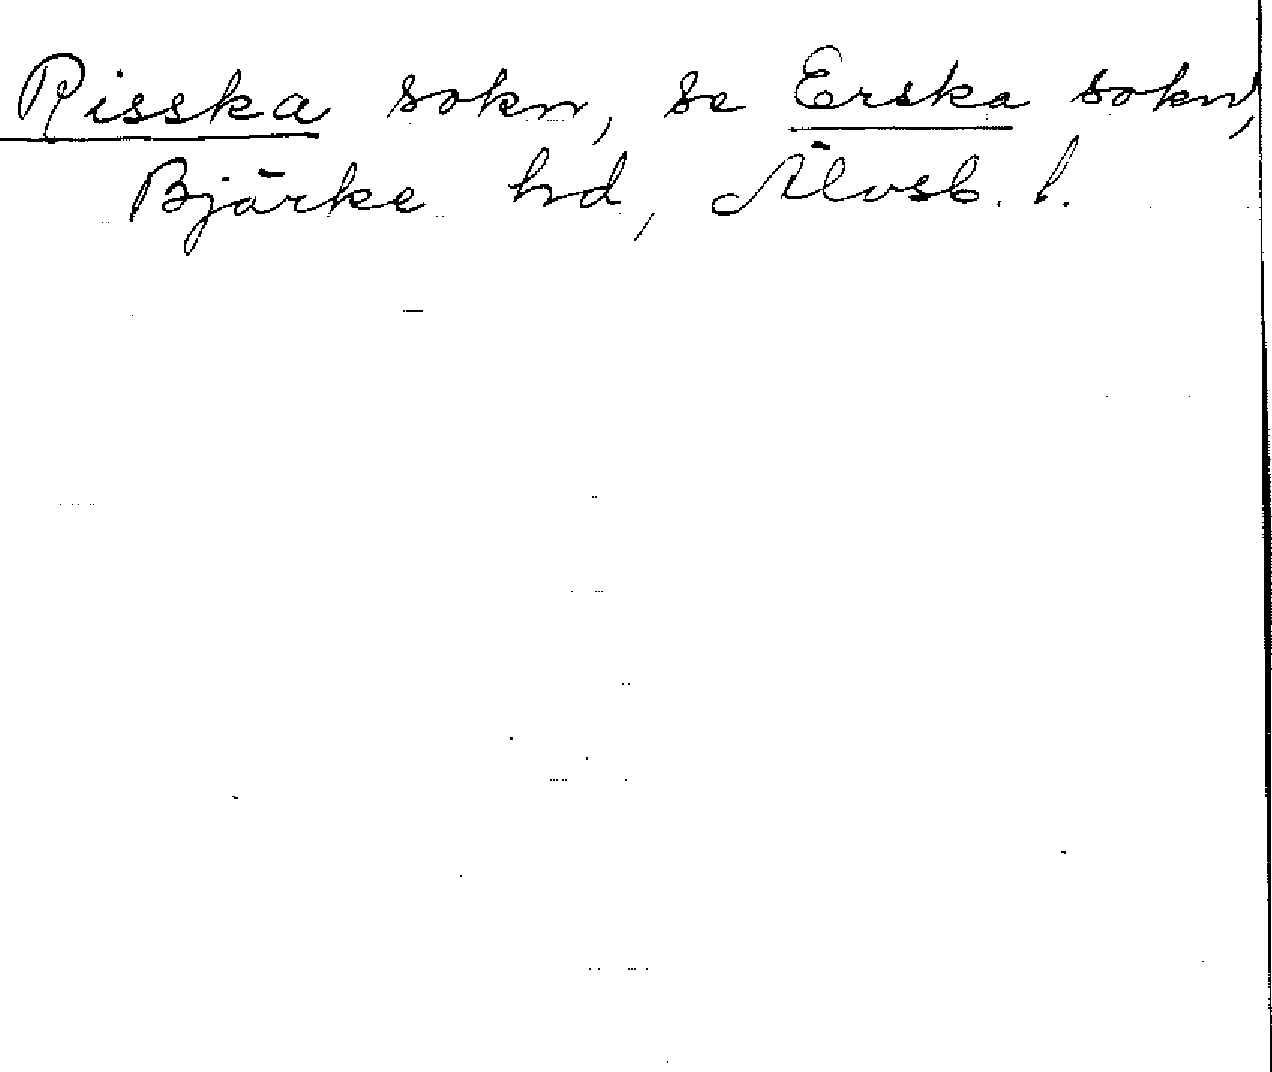 Risska sokn, se Erska sokn,
Bjärke hd, Älvsb. l.